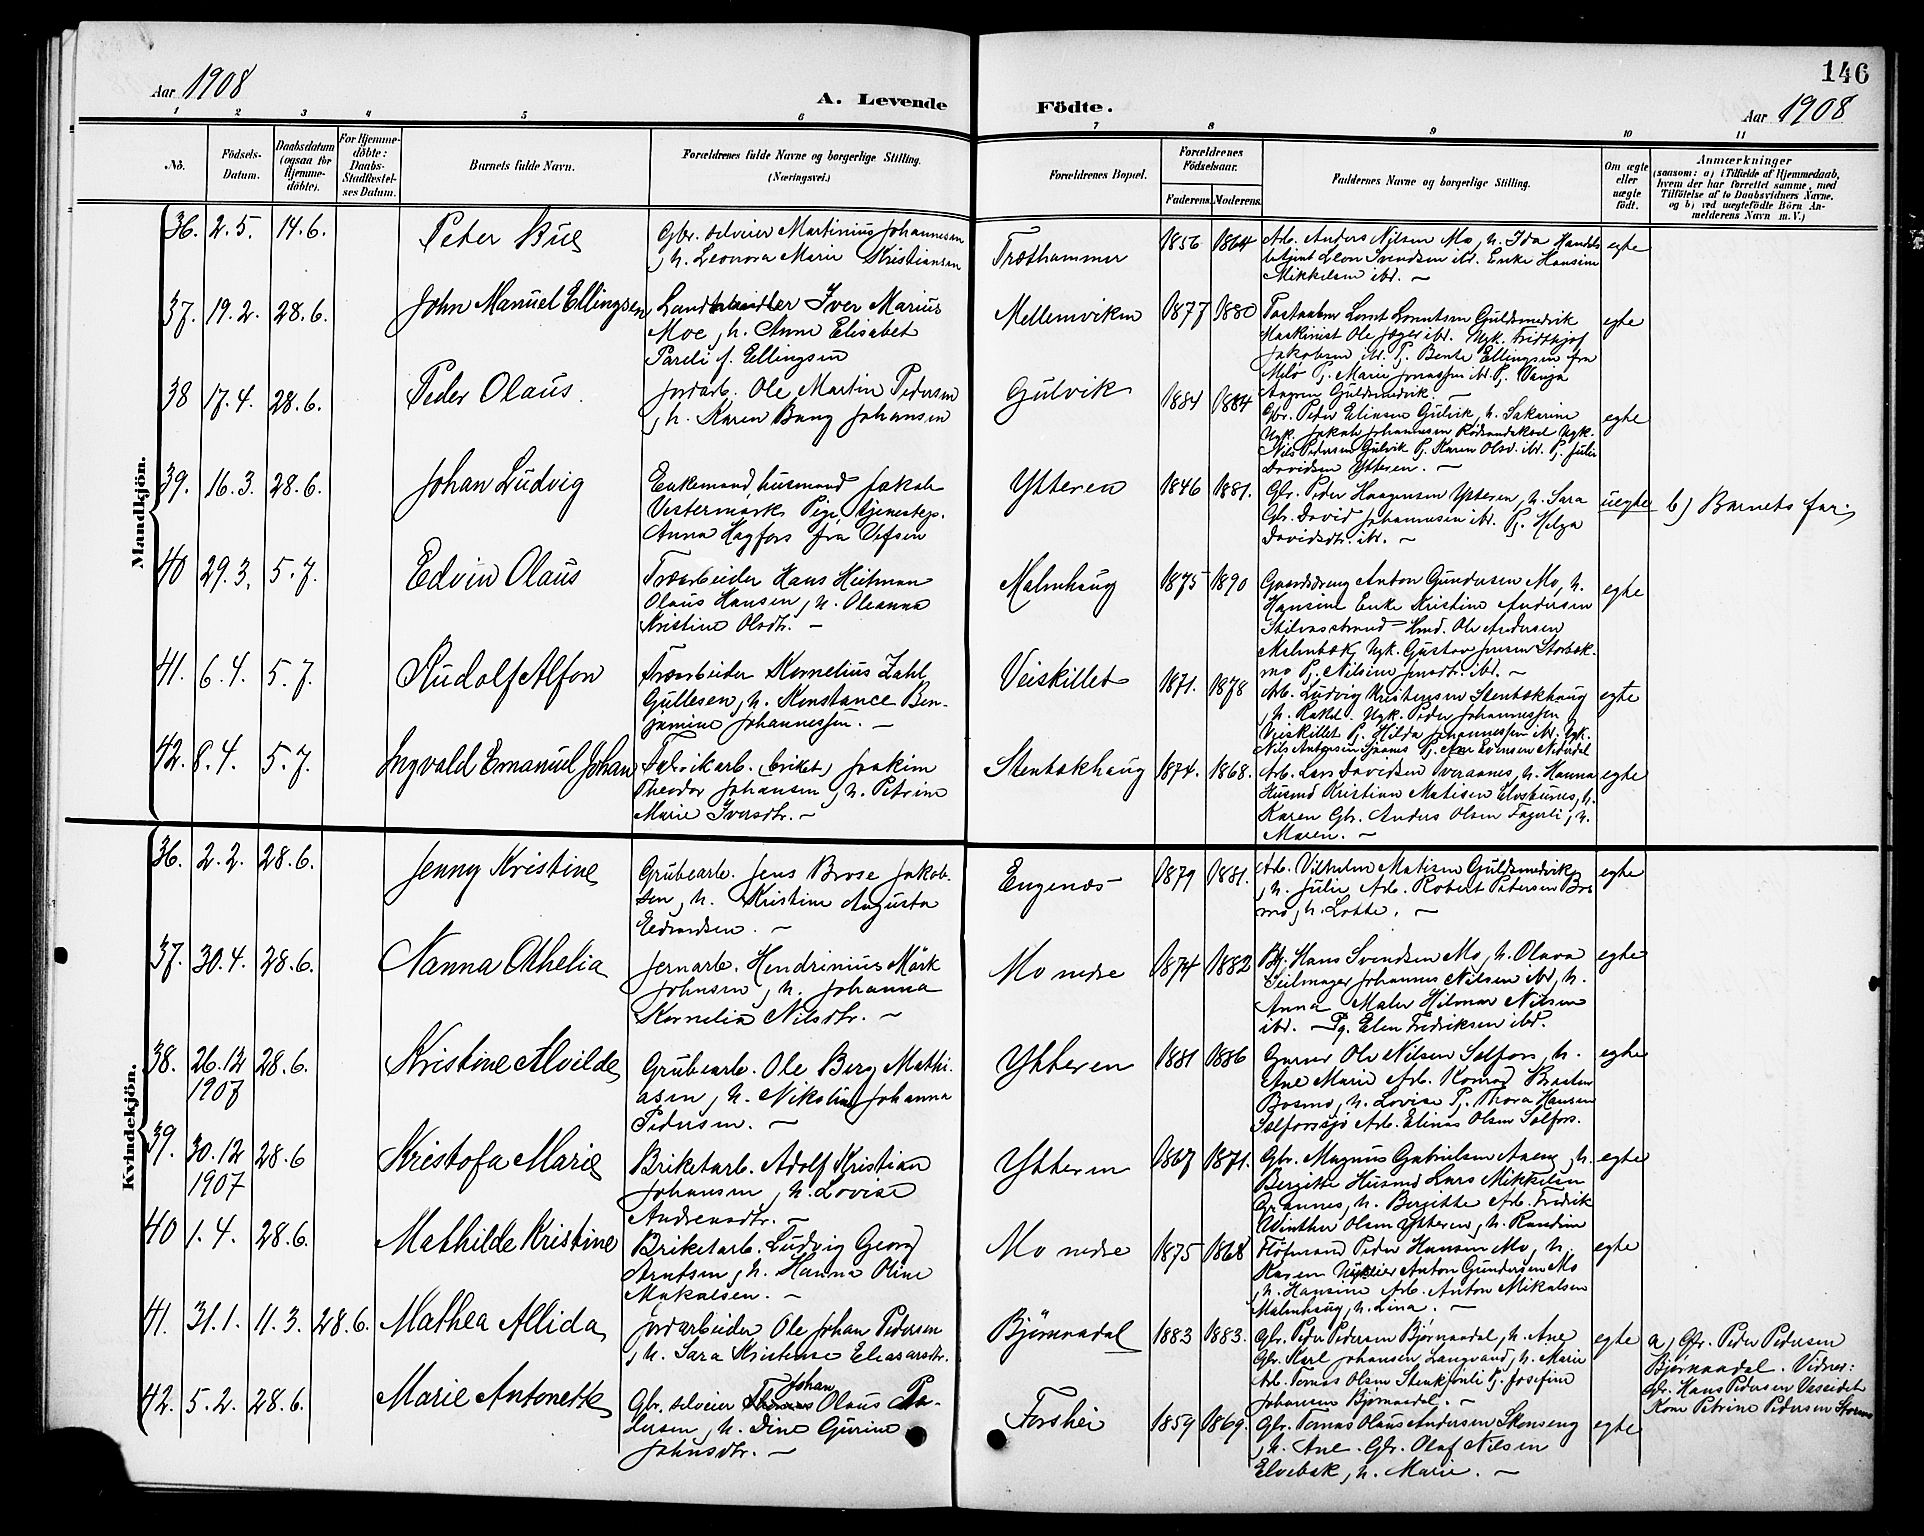 146
Aar 1908
A. Levende Födte.
Aar 1908
1 2 3 4 5 6 7 8 9 10 11
No. Födsels-Datum. Daabsdatum (ogsaa for Hjemme-döbte). For Hjemme-döbte: Daabs-Stadfæstel-ses Datum. Barnets fulde Navn. Forældrenes fulde Navne og borgerlige Stilling. (Næringsvei.) Forældrenes Bopæl. Forældrenes Födselsaar. Faderens. Moderens. Faddernes Navne og borgerlige Stilling. Om ægte eller uægte födt. Anmærkninger (saasom: a) i Tilfælde af Hjemmedaab, hvem der har forrettet samme, med Tilföielse af to Daabsvidners Navne, og b) ved uægtefödte Börn An-melderens Navn m. V.)
Mandkjön.
36. 2.5. 14.6. Peter Bue
Gbr. selveier Martinius Johannesen
, h. Leonora Marie Kristiansen
Træthammer 1856 1864
Arb. Anders Nilsen Mo, h. Ida Handels
betjent Leon Svendsen ibd. Enke Hansine
Mikkelsen ibd. —
egte
37. 19.2. 28.6. John Manuel Ellingsen
Landhandler Iver Marius
Moe, h. Anne Elisabet
Pareli f. Ellingsen
Mellemviken 1877 1880
Guldsmedvik
Maskinist Ole Jæger ibd. Ugk. Fridtkjof
Jakobsen ibd. Pj. Bente Ellingsen fra
Melø Pj. Marie Jonassen ibd. Pj. Vanja
Guldsmedvik. —
egte
38 17.4. 28.6. Peder Olaus.
Jordarb. Ole Martin Pedersen
, h. Karen Bang Johansen
Gulvik 1884 1884
Gbr. Peder Eliasen Gulvik, h. Sakarine
Ugk. Jakob Johannesen Ugk.
Nils Pedersen Gulvik Pj. Karen Olsd. ibd. Pj. Julie
Davidsen Ytteren. —
egte
39. 16.3. 28.6. Johan Ludvig
Enkemand, husmand Jakob
Vestermark Pige, tjenestep.
Anna Hagfors fra Vefsen
Ytteren 1846 1881.
Gbr. Peder Haagensen Ytteren, h. Sara
Gbr. David Johannesen ibd. Pj. Helga
Davidsdtr. ibd. —
uegte b) Barnets far.
40 29.3. 5.7. Edvin Olaus
Træarbeider Hans Heitman
Olaus Hansen, h. Oleanna
Kristine Olsdtr. —
Malmhaug 1875 1890
Gaardsdreng Anton Gundersen Mo, h.
Hansine Enke Kristine Andersen
Stilvasstrand Hmd. Ole Andersen
Malmbæk, Ugk. Gustav Jensen Storbæk-
mo Pj. Nilsine Jensdtr. ibd. —
egte
41. 6.4. 5.7. Rudolf Alfon
Træarbeider Kornelius Zahl
Gullesen, h. Konstance Ben-
jamine Johannessen. —
Veiskillet 1871. 1878
Arb. Ludvig Kristensen Stenbækhaug
, h. Rakel. Ugk. Peder Johannessen
Veiskillet Pj. Hilda Johannessen ibd. Ugk.
Nils Antonsen Pj. Ane Evensen
egte
42. 8.4. 5.7. Ingvald Emanuel Johan
Fabrikarb. (briket) Joakim
Theodor Johansen, h. Petrine
Marie Iversdtr. —
Stenbækhaug 1874. 1868.
Arb. Lars Davidsen Veraanes, h. Hanna
Husmd Kristian Matisen, h.
Karen Gbr. Anders Olsen Fagerli, h.
Maren. —
egte
Kvindekjön.
36. 2.2. 28.6. Jenny Kristine
Grubearb. Jens Brose Jakob-
sen, h. Kristine Augusta
Edvardsen. —
Engenæs 1879 1881.
Arb. Vilhelm Matisen Guldsmedvik
, h. Julie Arb. Robert Petersen Bos
mo, h. Lotte. —
egte
37. 30.4. 28.6. Nanna Othelia
Jernarb. Hendrinius Mörk
Johnsen, h. Johanna
Kornelia Nilsdtr. —
Mo nedre 1874 1882
Bj. Hans Svendsen Mo, h. Olava
Seilmager Johannes Nilsen ibd, h.
Anna Maler Hilmar Nilsen
ibd. — Pg. Elen Fredriksen ibd.
egte
38. 26.12 1907 28.6. Kristine Alvilde
Grubearb. Ole Berg Mathi-
asen, h. Nikoline Johanna
Pedersen. —
Ytteren 1881 1886
Garver Ole Nilsen Selfors, h.
Ane Marie Arb. Konrad Braaten
Bosmo, h. Lovise Pj. Thora Hansen
Selforssjö Arb. Elias Olsen Selfors.
egte
39. 30.12 1907 28.6 Kristofa Marie
Briketarb. Adolf Kristian
Johansen, h. Lovise
Andreasdtr. —
Ytteren 1867 1871.
Gbr. Magnus Gabrielsen Aneng, h.
Bergitte Husmd Lars Mikkelsen
Grannes, h. Bergitte Arb. Fredrik
Winther Olsen Ytteren, h. Randine
egte
40 1.4. 28.6. Mathilde Kristine
Briketarb. Ludvig Georg
Arntsen, h. Hanna Oline
Mikalsen. —
Mo nedre 1875 1868
Flötmand Peder Hansen Mo, h.
Karen Anton Gundersen Mo
, h. Hansine Arb. Anton Mikalsen
Malmhaug, h. Lina. —
egte
41. 31.1. 11.3. 28.6. Mathea Allida
Jordarbeider Ole Johan Pedersen
, h. Sara Kristense Eleasarsdtr.
Bjørnaadal 1883 1883.
Gbr. Peder Pedersen Bjørnaadal, h. Ane
Gbr. Karl Johansen Langvand, h. Marie
Arb. Tomas Olsen Pj. Josefine
Johansen Bjørnaadal. —
egte
a, Gbr. Peder Pedersen
Bjørnaadal. Vidner:
Gbr. Hans Pedersen
Kone Petrine Pedersen
42. 5.2. 28.6. Marie Antonette
Gbr. selveier Johan Olaus Pe-
dersen, h. Dine Gurine
Johnsdtr. —
Forshei 1859 1869.
Gbr. Tomas Olaus Andersen Skonseng
, h. Ane. Gbr. Olaf Nilsen
Elvebak, h. Marie. —
egte